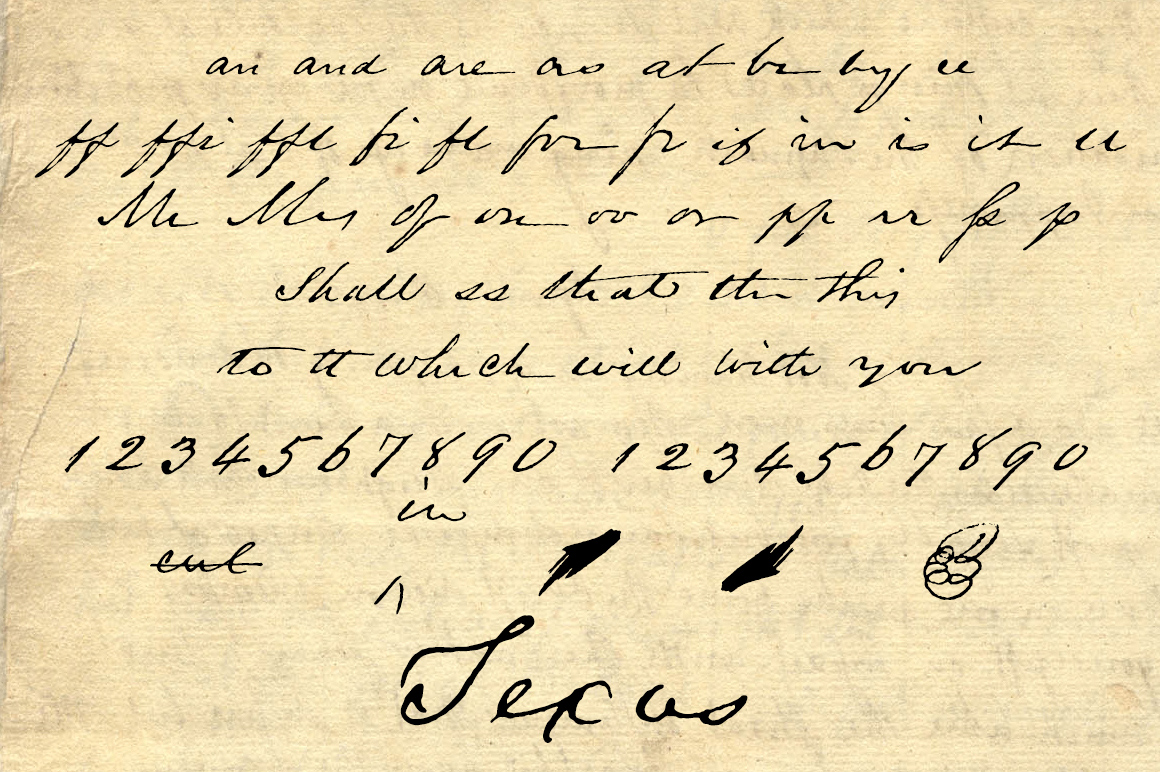 an and are as at be by ee
ff ffi ffl fi fl for fr if in is it ll
Me Mrs of one oo or pp rr ss
Shall ss that the this
to tt which will with you
1234567890 1234567890
in
cut
Texas